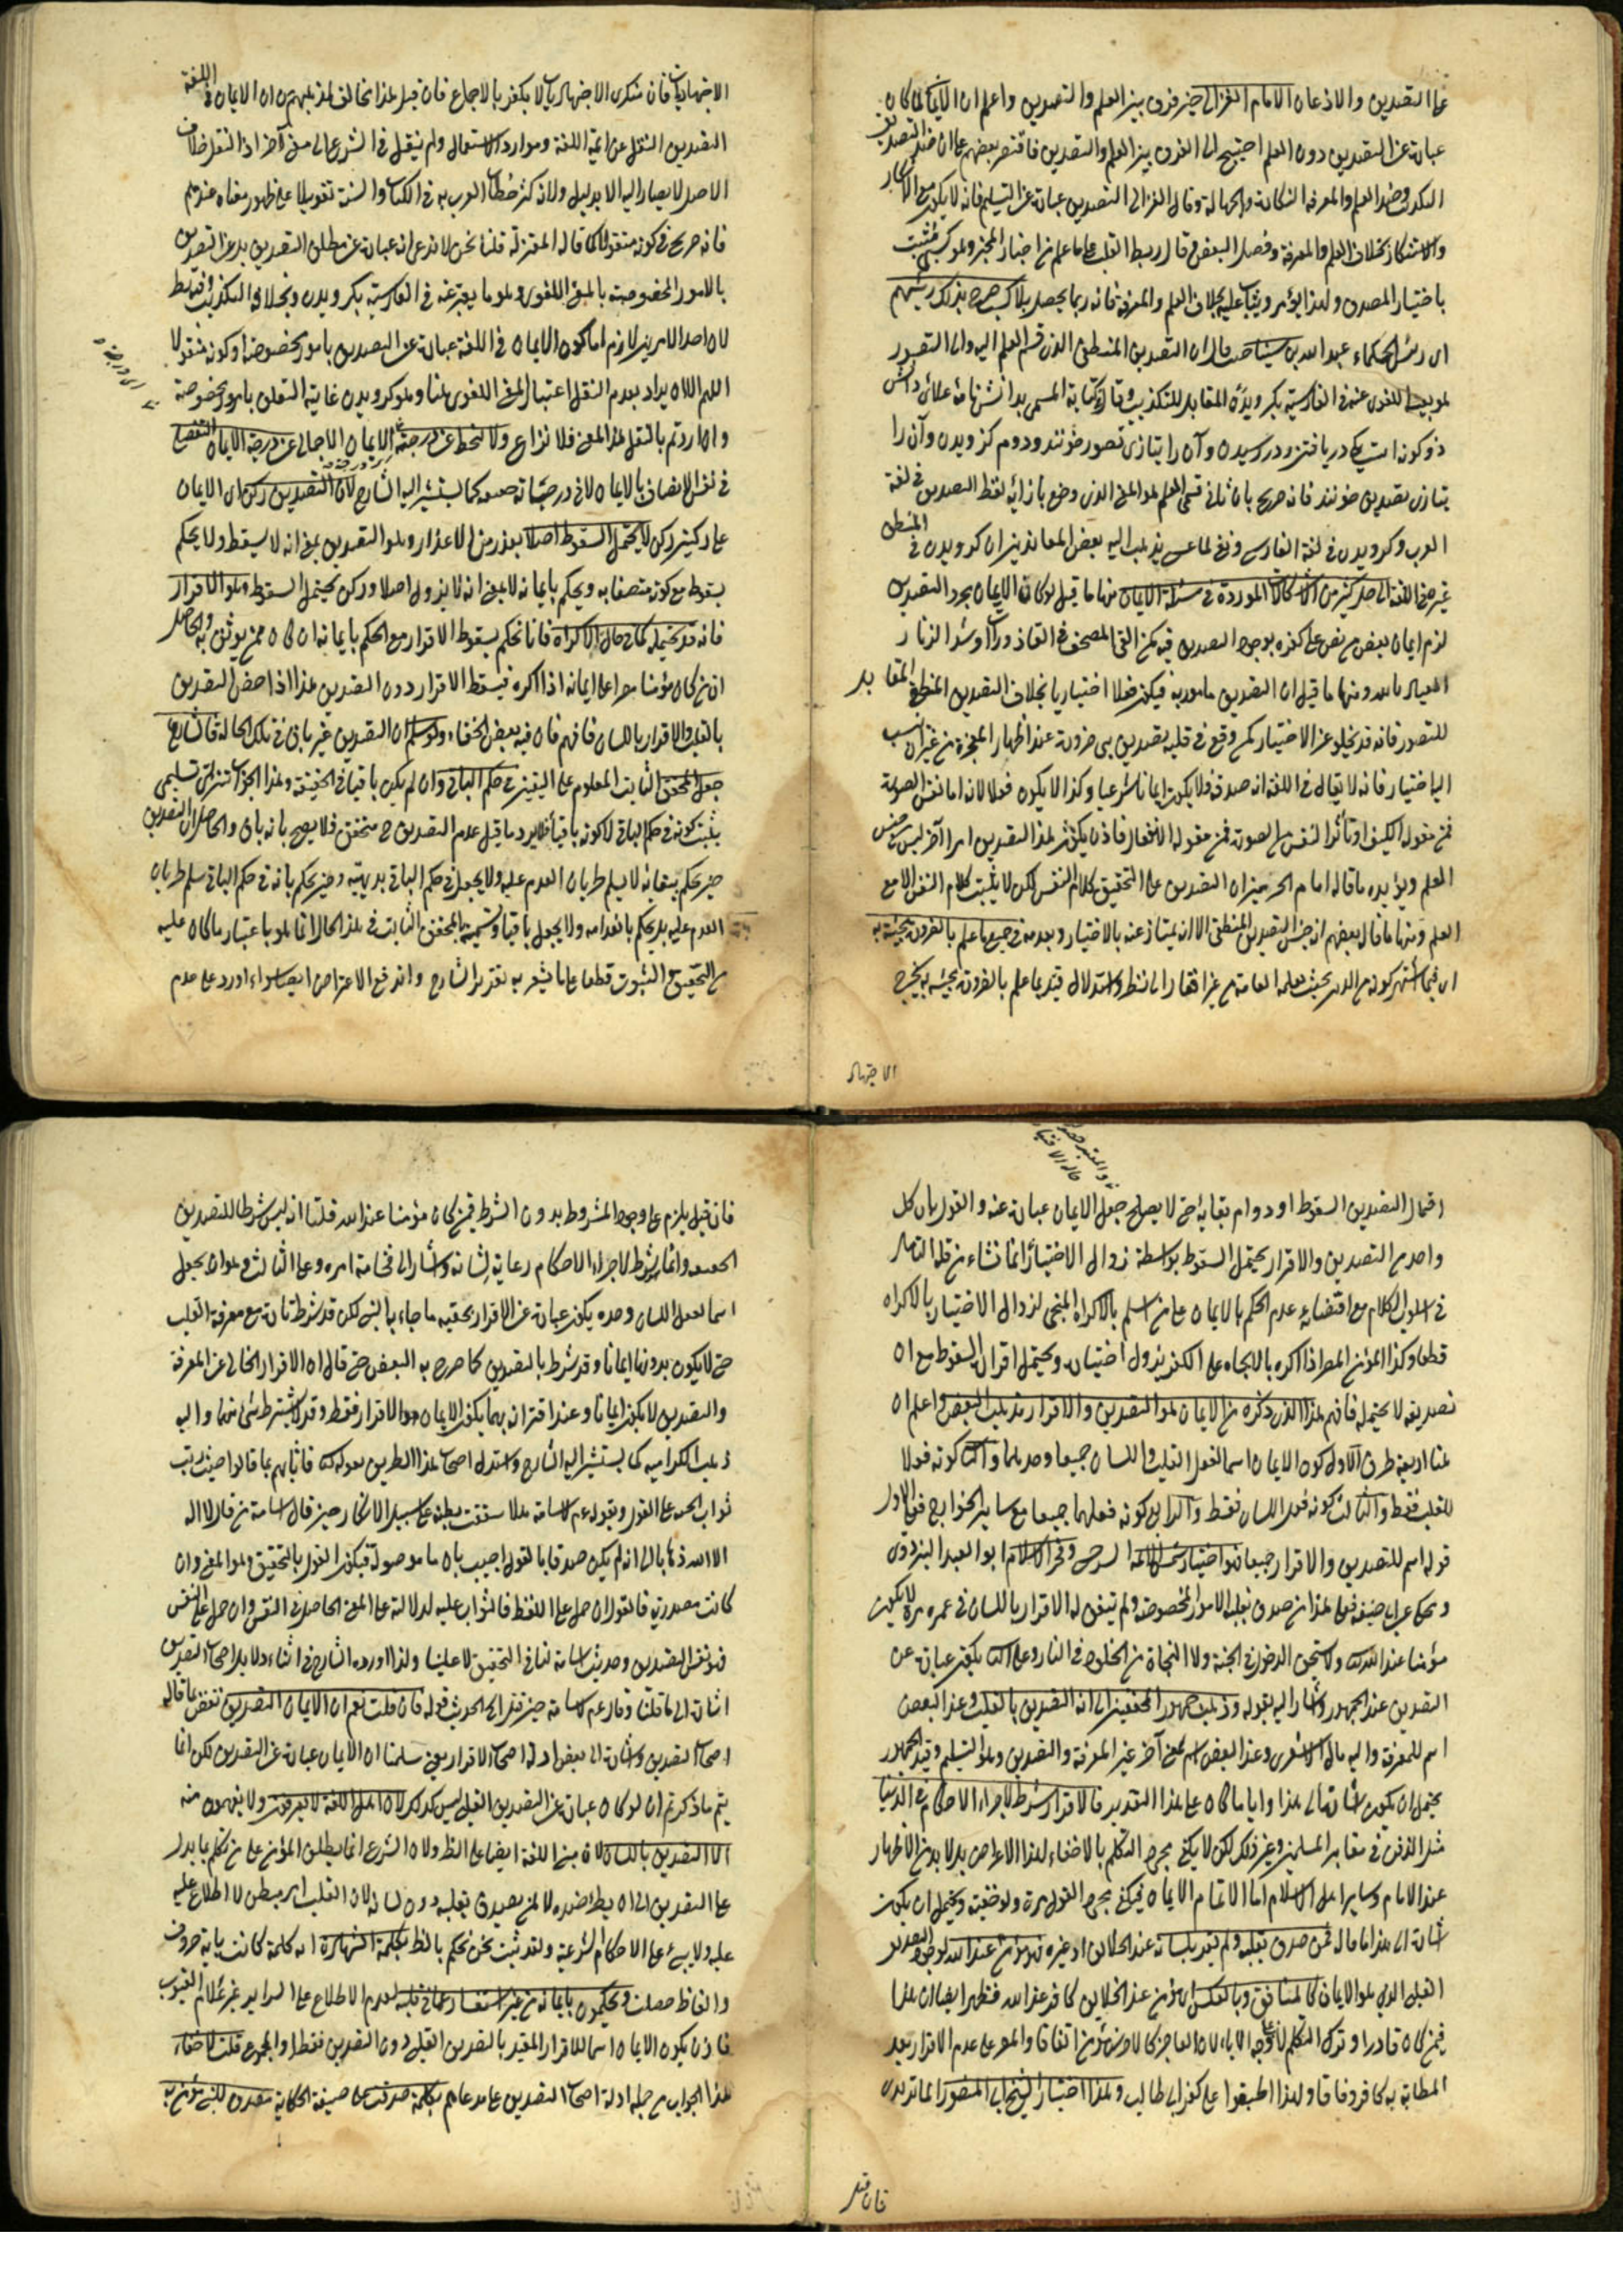 على التصديق والاذعان الامام الغزالي حيث فرق بين العلم والتصديق واعلم ان الايمان لما كان
عبارة عن التصديق دون العلم احتيج الى الفرق بين العلم والتصديق فاقتصر بعضهم على ان ضد التصديق
التكذيب وضد العلم والمعرفة النكارة والجهالة وقال الغزالي التصديق عبارة عن التسليم فانه لا يكون مع الانكار
والاستنكار بخلاف العلم والمعرفة وفصل البعض وقال ربط القلب على ما علم من اخبار المخبر وهو كسبي يثبت
باختيار المصدق ولهذا يؤمر ويثاب عليه بخلاف العلم والمعرفة فانه ربما يحصل بلا كسب صرح بذلك رئيسهم
اي رئيس الحكماء عبد الله بن سينا حيث قال ان التصديق المنطقي الذي قسم العلم اليه والى التصور
هو بعينه اللغوي عنه في الفارسية بكرويدن المقابل للتكذيب وقال في كتابه المسمى بدانش نامه علائي دانش
دو كونه است يكي دريافتن ودر رسيدن وآن را بتازى تصور خوانند ودوم كرويدن وآن را
بتازى تصديق خوانند فانه صريح بان ثاني قسمي العلم هو المعنى الذي وضع بازائه لفظ التصديق في لغة
العرب وكرويدن في لغة الفارس ونفي لما عسى يذهب اليه بعض المعاندين ان كرويدن في المنطق
غيره في اللغة الى حل كثير من الاشكالات الموردة في مسئلة الايمان منها ما قيل لو كان الايمان مجرد التصديق
لزم ايمان بعض من نص على كفره بوجود التصديق فيه كمن القى المصحف في القاذورات او شد الزنار
العياذ بالله ومنها ما قيل ان التصديق مأمور به فيكون فعلا اختياريا بخلاف التصديق المنطقي المقابل
للتصور فانه قد يخلو عن الاختيار كمن وقع في قلبه تصديق نبي ضرورة عند اظهار المعجزة من غير ان ينسب
اليه اختيار فانه لا يقال في اللغة انه صدقه فلا يكون ايمانا شرعيا وكذا لا يكون فعلا لانه اما نفس الصورة
فمن مقولة الكيف او تأثر النفس من الصورة فمن مقولة الانفعال فاذن يكون هذا التصديق امرا آخر ليس من جنس
العلم ويؤيده ما قاله امام الحرمين ان التصديق على التحقيق كلام النفس لكن لا يثبت كلام النفس الا مع
العلم ومنها ما قال بعضهم انه جنس التصديق المنطقي الا انه يمتاز عنه بالاختيار وبعدمه في جميع ما علم بالضرورة مجيئه به
اي فيما اشتهر كونه من الدين بحيث يعلمه العامة من غير افتقار الى نظر واستدلال قيد بما علم بالضرورة مجيئه به ليخرج
الاجتهاد
الاجتهاديات فان منكر الاجتهاديات لا يكفر بالاجماع فان قيل هذا مخالف لمذهبهم من ان الايمان في اللغة
التصديق النقل عن ائمة اللغة وموارد الاستعمال ولم ينقل في الشرع الى معنى آخر اذ النقل خلاف
الاصل لا يصار اليه الا بدليل ولانه كثر خطاب العرب به في الكتاب والسنة تعويلا على ظهور معناه عندهم
فانه صريح في كونه منقولا كما قاله المعتزلة قلنا نحن لا ندعي انه عبارة عن مطلق التصديق بل عن التصديق
بالامور المخصوصة بالمعنى اللغوي وهو ما يعبر عنه في الفارسية بكرويدن وبخلافه التكذيب فقط
لان احد الامرين لازم اما كون الايمان في اللغة عبارة عن التصديق بامور مخصوصة او كونه منقولا
اللهم الا ان يراد بعدم النقل اعتبار المعنى اللغوي هنا وهو كرويدن غاية التعلق بامور مخصوصة
وان اردتم بالنقل هذا المعنى فلا نزاع ولا تنحط عن درجته اي الايمان الاجمالي عن درجة الايمان التفصيلي
في نفس الاتصاف بالايمان لا في درجاته كما يشير اليه الشارح لان التصديق ركن اي الايمان
على ركنين ركن لا يحتمل السقوط اصلا بعذر من الاعذار وهو التصديق بمعنى انه لا يسقط ولا يحكم
بسقوطه مع كونه متصفا به ويحكم بايمانه لا بمعنى انه لا يزول اصلا وركن يحتمل السقوط وهو الاقرار
فانه قد يحتمله كما في حال الاكراه فانا نحكم بسقوط الاقرار مع الحكم بايمانه ان كان ممن يوثق به والحاصل
ان من كان مؤمنا مصرا على ايمانه اذا اكره فيسقط الاقرار دون التصديق هذا اذا خص التصديق
بالقلب والاقرار باللسان فافهم فان فيه بعض الخفاء ولو سلم ان التصديق غير باق في تلك الحالة فالشارع
جعل المحقق الثابت المعلوم على اليقين في حكم الباقي وان لم يكن باقيا في الحقيقة وهذا الجواب تنزلي تسليمي
يثبت كونه في حكم الباقي لا كونه باقيا فلا يرد ما قيل عدم التصديق ح متحقق فلا يصح بانه باق والحاصل ان التصديق
حين حكم ببقائه لا يسلم طريان العدم عليه ولا يجعل في حكم الباقي بديهة وحين يحكم بانه في حكم الباقي سلم طريان
العدم عليه بل يحكم بانعدامه ولا يجعل باقيا وتسميته بالمحقق الثابت في هذا الحال انما هو باعتبار ما كان عليه
من التحقيق والثبوت قطعا على ما يشعر به تقرير الشارح واندفع الاعتراض ايضا سواء اورد على عدم
احتمال التصديق السقوط او دوام بقائه حتى لا يصلح جعل الايمان عبارة عنه والقول بان كل
واحد من التصديق والاقرار يحتمل السقوط بواسطة زوال الاختيار انما نشاء من قلة التأمل
في اسلوب الكلام مع اقتضائه عدم الحكم بالايمان على من اسلم بالاكراه الملجئ لزوال الاختيار بالاكراه
قطعا وكذا المؤمن المصر اذا اكره بالالجاء على الكفر يزول اختياره ويحتمل اقراره السقوط مع ان
تصديقه لا يحتمله فافهم هذا الذي ذكره من الايمان هو التصديق والاقرار مذهب البعض واعلم ان
هنا اربعة طرق الاول كون الايمان اسما لفعل القلب واللسان جميعا وحدهما والثاني كونه فعلا
للقلب فقط والثالث كونه فعل اللسان فقط والرابع كونه فعلهما جميعا مع سائر الجوارح فعلى الاول
قوله اسم للتصديق والاقرار جميعا هو اختيار شمس الائمة السرخسي وفخر الاسلام ابو العسر البزدوي
ويحكى عن ابي حنيفة فعلى هذا من صدق بقلبه الامور المخصوصة ولم يتفق له الاقرار باللسان في عمره مرة لا يكون
مؤمنا عند الله تعالى ولا يستحق الدخول في الجنة ولا النجاة من الخلود في النار وعلى الثاني يكون عبارة عن
التصديق عند الجمهور واشار اليه بقوله وذهب جمهور المحققين الى انه التصديق بالقلب وعند البعض
اسم للمعرفة واليه مال الاشعري وعند البعض اسم لمعنى آخر غير المعرفة والتصديق وهو التسليم وقيد الجمهور
يحتمل ان يكون اشارة الى هذا وايا ما كان على هذا التقدير فالاقرار شرط لاجراء الاحكام في الدنيا
مثل الدفن في مقابر المسلمين وغير ذلك لكن لا يكفي مجرد التكلم بالاخفاء لهذا الاغراض بل لا بد من الاظهار
عند الامام وسائر اهل الاسلام اما لاتمام الايمان فيكفي مجرد القول مرة ولو خفية ويحتمل ان يكون
اشارة الى هذا ما قال فمن صدق بقلبه ولم يقر بلسانه عند الخلائق او غيره فهو مؤمن عند الله لوجود التصديق
القلبي الذي هو الايمان كالمنافق وبالعكس اي مؤمن عند الخلايق كافر عند الله فظهر ايضا ان هذا
فمن كان قادرا وترك التكلم لا على وجه الاباء لان العاجز كالاخرس مؤمن اتفاقا والمصر على عدم الاقرار بعد
المطالبة به كافر وفاقا ولهذا اطبقوا على كفر ابي طالب وهذا اختيار الشيخ ابي المنصور الماتريدي
فان قيل
فان قيل يلزم على وجود المشروط بدون الشرط فيمن كان مؤمنا عند الله قلنا انه ليس شرطا للتصديق
وانما يشترط لاجراء الاحكام رعاية لشانه واشارة الى فخامة امره وعلى الثالث وهو ان يجعل
اسما لعمل اللسان وحده يكون عبارة عن الاقرار بحقية ما جاء بالنبي لكن قد شرط تارة مع معرفة القلب
حتى لا يكون بدونها ايمانا وقد شرط بالتصديق كما صرح به البعض حتى قال ان الاقرار الخالي عن المعرفة
والتصديق لا يكون ايمانا وعند اقترانه بهما يكون الايمان هو الاقرار فقط وقد لا يشترط شئ منها واليه
ذهب الكرامية كما يشير اليه الشارح واستدل اصحاب هذا الطريق بقوله تعالى فاثابهم بما قالوا حيث رتب
ثواب الجنة على القول وبقوله عم لاسامة هلا شققت بطنه على سبيل الانكار حين قال اسامة من قال لا اله
الا الله ذهابا الى انه لم يكن صدقا بالقول اجيب بان ما موصولة فيكون القول بالتحقيق هو المعنى وان
كانت مصدرية فالقول ان حمل على اللفظ فالثواب عليه لدلالته على المعنى الحاصل في النفس وان حمل على النفس
فهو نفس التصديق وحديث اسامة لنا في التحقيق لا علينا ولذا اورده الشارح في اثناء دلايل اصحاب التصديق
اشارة الى ما قلنا وقال عم لاسامة حين قتل الى الحديث قوله فان قلت نعم ان الايمان التصديق نقض على ما قاله
اصحاب التصديق واشارة الى بعض ادلة اصحاب الاقرار يعني سلمنا ان الايمان عبارة عن التصديق لكن انما
يتم ما ذكرتم ان لو كان عبارة عن التصديق القلبي ليس كذلك لان اهل اللغة لا يعرفون ولا يفهمون منه
الا التصديق باللسان لان مبنى اللغة ايضا على الظ ولان الشرع انما يطلق المؤمن على من تكلم بما يدل
على التصديق الى ان يظهر ضده لا لمن يصدق بقلبه دون لسانه لان القلب امر مبطن لا اطلاع عليه
عليه ولا يبنى على الاحكام الشرعية ولقد ثبت نحن نحكم بالظ بكلمة الشهادة اي كلمة كانت باية حروف
والفاظ حصلت ويحكمون بايمانه من غير استفسار عما في قلبه لعدم الاطلاع على السراير لغير علام الغيوب
فاذن يكون الايمان اسما للاقرار المقيد بالتصديق القلبي دون التصديق فقط او المجموع قلت لا خفاء
هذا الجواب من جملة ادلة اصحاب التصديق على مدعاهم بكلمة صدقت على صيغة الحكاية مصدق للنبي مؤمن به